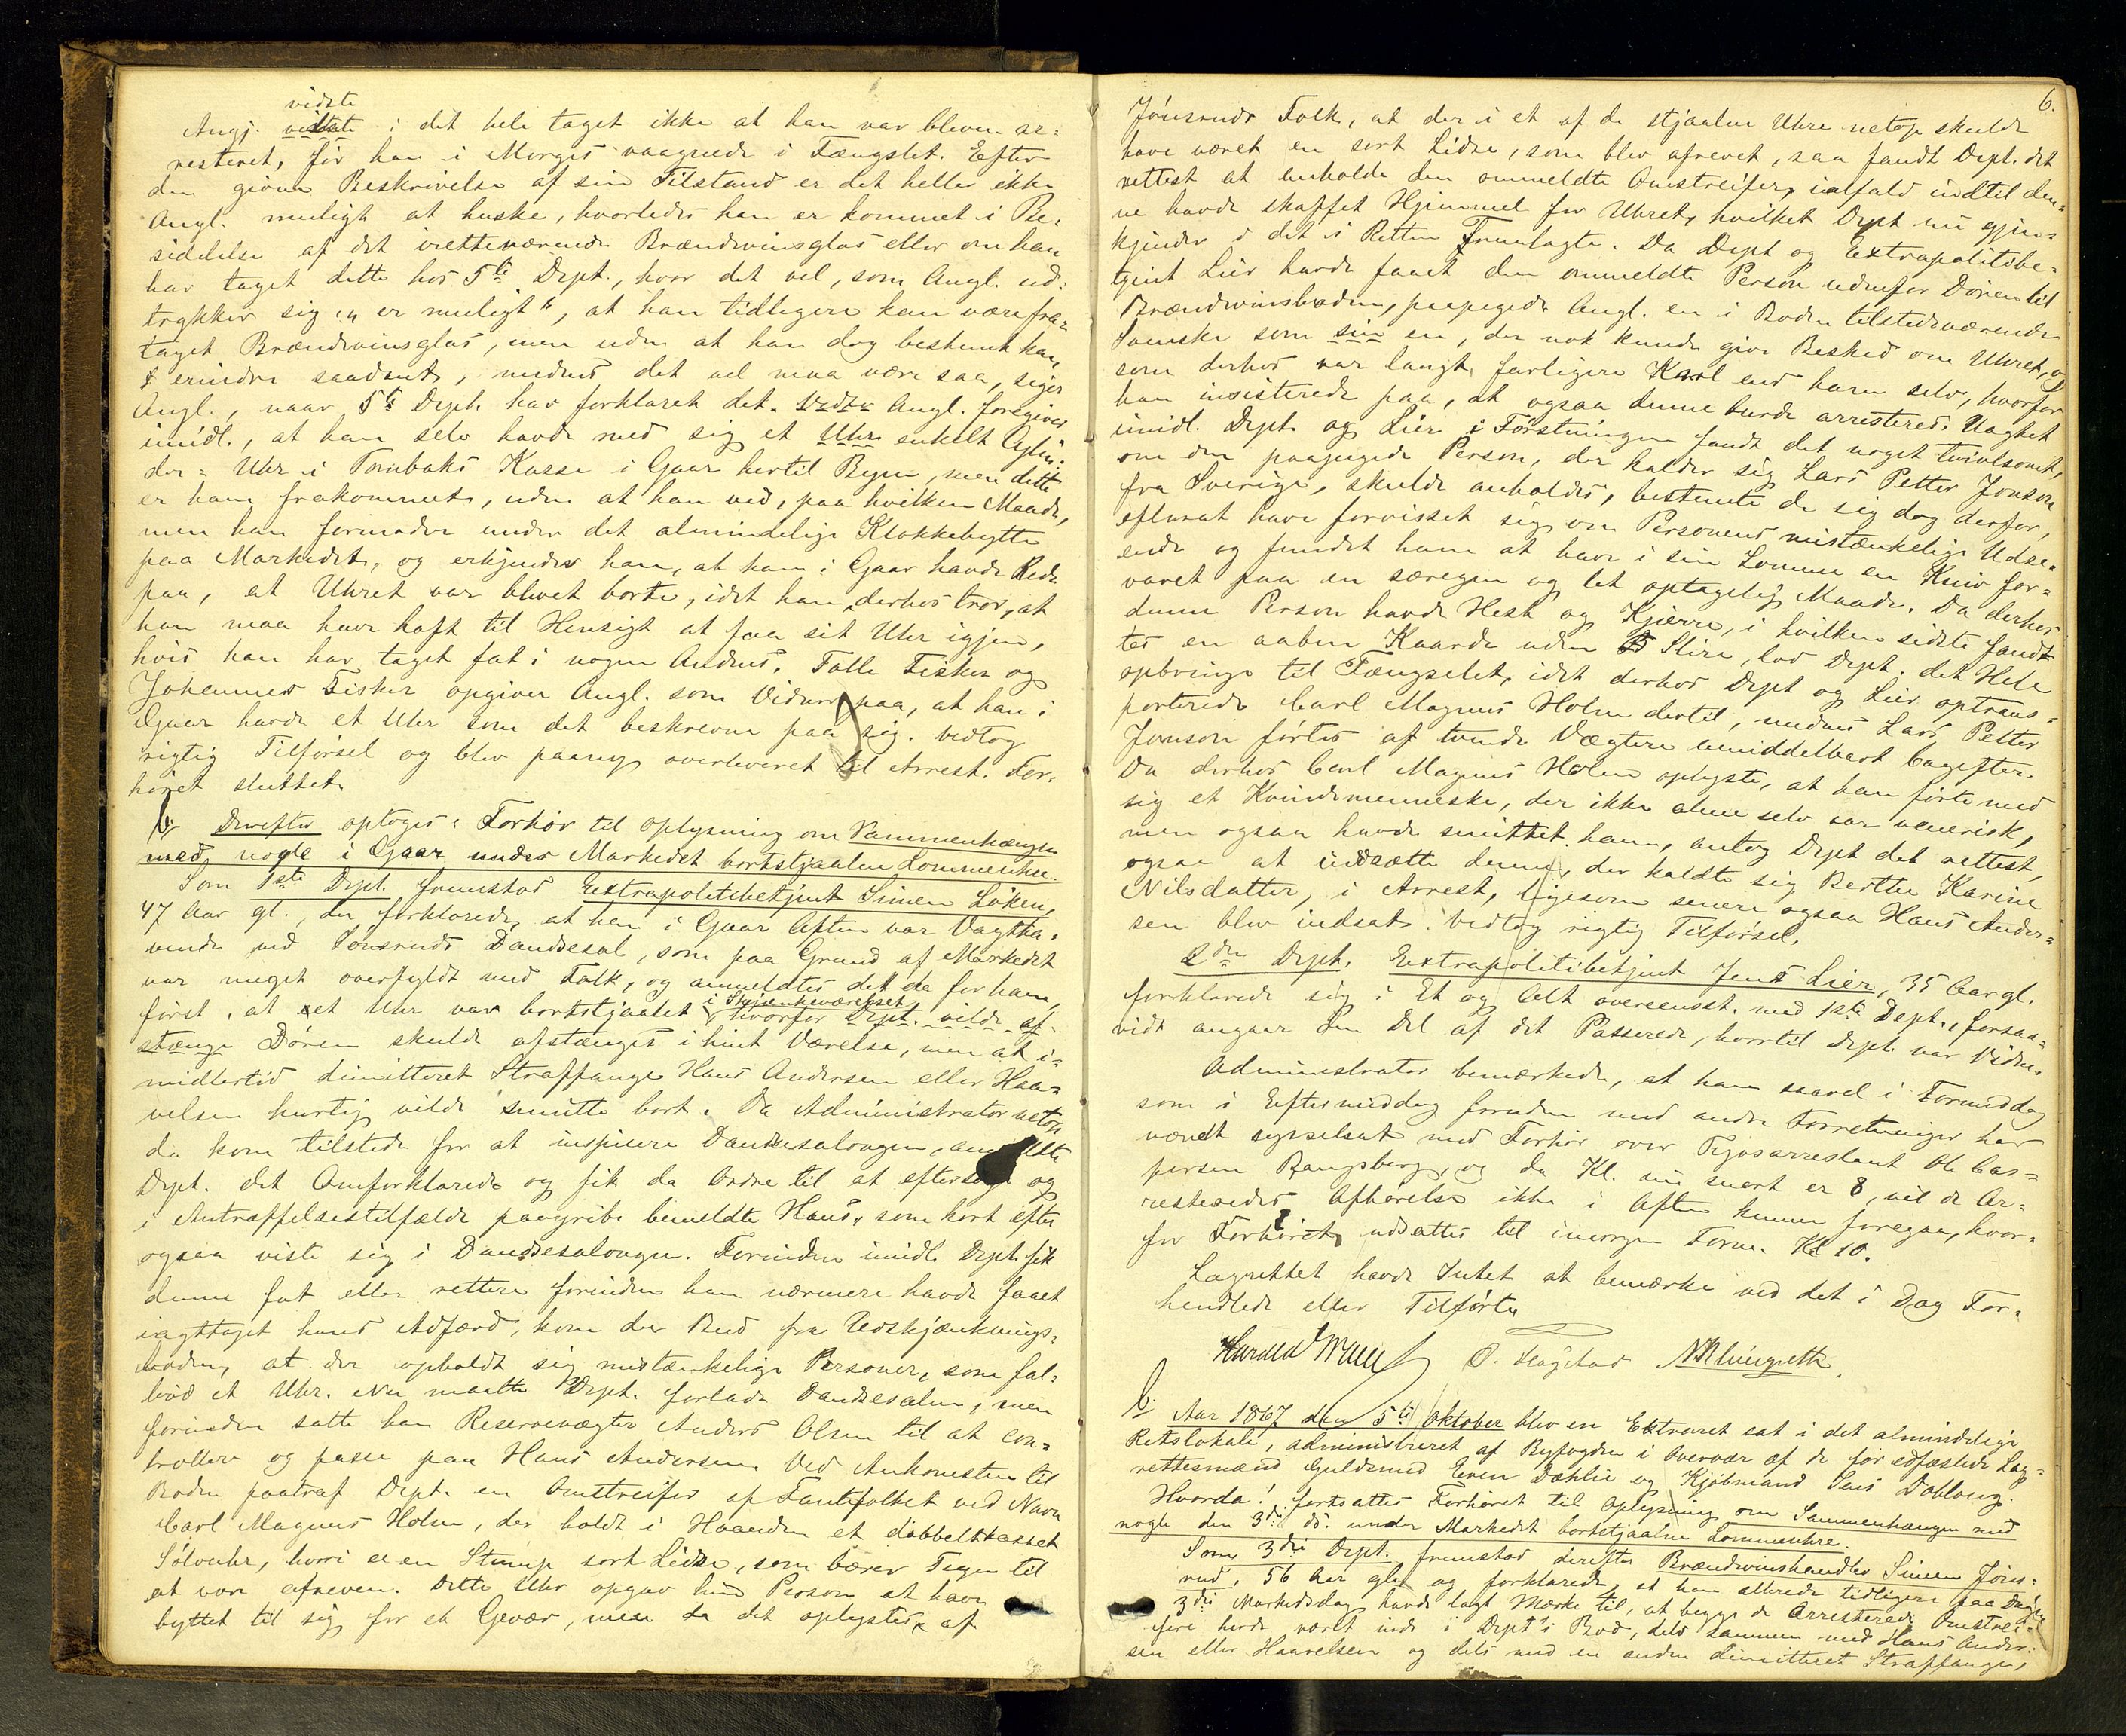 vidste
Angj. vidste i det hele taget ikke at han var bleven ar=
resteret, før han i Morges vaagnede i Fængslet. Efter
den givne Beskrivelse af sin Tilstand er det heller ikke
Angl. muligt at huske, hvorledes han er kommet i Be=
siddelse af det iretteværende Brændevinsglas eller om han
har taget dette hos 5te Dept., hvor det vel, som Angl. ud=
trykker sig, "er muligt", at han tidligere kan være fra=
taget Brændevinsglas, men uden at han dog bestemt kan
erindre saadant, medens det vel maa være saa, siger
Angl., naar 5te Dept. har forklaret det. Angl. foregiver
imidl., at han selv havde med sig et Uhr enkelt Cylin=
der=Uhr i Tombaks Kasse i Gaar hertil Byen, men dette
er ham frakommet, uden at han ved, paa hvilken Maade,
men han formoder under det almindelige Klokkebytte
paa Markedet, og erkjender han, at han i Gaar havde Rede
paa, at Uhret var blevet borte, idet han derhos tror, at
han maa have haft til Hensigt at faa sit Uhr igjen,
hvis han har taget fat i nogen Andens. Talle Fisker og
Johannes Fisker opgiver Angl. som Vidner paa, at han i
Gaar havde et Uhr som det beskrevne paa sig. Vedtog
rigtig Tilførsel og blev paany overleveret til Arrest. For=
høret sluttet.
Derefter optoges: Forhør til Oplysning om Sammenhængen
med nogle i Gaar under Markedet bortstjaalne Lommeuhre.
Som 1ste Dept. fremstod Extrapolitibetjent Simen Løken,
47 Aar gl., der forklarede, at han i Gaar Aften var Vagtha=
vende ved Jønsruds Dandsesal, som paa Grund af Markedet
var meget overfyldt med Folk, og anmeldtes det da for ham,
først, at et Uhr var bortstjaalet i Skjænkeværelset, hvorfor Dept. vilde af=
stænge Døren skulde afstænges i hint Værelse, men at i=
midlertid dimitteret Straffange Hans Andersen eller Haa=
velsen hurtig vilde smutte bort. Da Administrator netop
da kom tilstede for at inspicere Dandsesalongen, anmeldte
Dept. det Omforklarede og fik da Ordre til at eftersøge og
i Antræffelsestilfælde paagribe bemeldte Hans, som kort efter
ogsaa viste sig i Dandsesalongen. Forinden imidl. Dept. fik
denne fat eller rettere forinden han nærmere havde faaet
iagttaget hans Adfærd, kom der Bud fra Udskjænknings=
boden, at der opholdt sig mistænkelige Personer, som fal=
bød et Uhr. Nu maatte Dept. forlade Dandsesalen, men
forinden satte han Reservevægter Anders Olsen til at con=
trollere og passe paa Hans Andersen. Ved Ankomsten til
Boden paatraf Dept. en Omstreifer af Fantefolket ved Navn
Carl Magnus Holm, der holdt i Haanden et dobbeltkasset
Sølvuhr, hvori er en Stump sort Lidse, som bærer Tegn til
at være afreven. Dette Uhr opgav hin Person at have
byttet til sig for et Gevær, men da det oplystes af
6.
Jønsruds Folk, at der i et af de stjaalne Uhre netop skulde
have været en sort Lidse, som blev afrevet, saa fandt Dept. det
rettest at anholde den ommeldte Omstreifer, ialfald indtil den=
ne havde skaffet Hjemmel for Uhret, hvilket Dept. nu gjen=
kjender i det i Retten Fremlagte. Da Dept. og Extrapolitibe=
tjent Lier havde faaet den ommeldte Person udenfor Døren til
Brændevinsboden, paapegede Angl. en i Boden tilstedeværende
Svenske som sin en, der nok kunde give Besked om Uhret, og
som derhos var langt farligere Karl end ham selv, hvorfor
han insisterede paa, at ogsaa denne burde arresteres. Uagtet
imidl. Dept. og Lier i Førstningen fandt det noget tvivlsomt,
om den paapegede Person, der kalder sig Lars Petter Jonson
fra Sverige, skulde anholdes, bestemte de sig dog derfor,
efterat have forvisset sig om Personens mistænkelige Udse=
ende og fundet ham at have i sin Lomme en Kniv for=
varet paa en særegen og let optagelig Maade. Da derhos
denne Person havde Hest og Kjerre, i hvilken sidste fandt=
tes en aaben Kaarde uden Slire, lod Dept. det Hele
opbringe til Fængselet, idet derhos Dept. og Lier optrans=
porterede Carl Magnus Holm dertil, medens Lars Petter
Jonson førtes af tvende Vægtere umiddelbart bagefter.
Da derhos Carl Magnus Holm oplyste, at han førte med
sig et Kvindemenneske, der ikke alene selv var venerisk,
men ogsaa havde smittet ham, antog Dept. det rettest,
ogsaa at indsætte denne, der kaldte sig Berthe Karine
Nilsdatter, i Arrest, ligesom senere ogsaa Hans Ander=
sen blev indsat. Vedtog rigtig Tilførsel.
2den Dept. Extrapolitibetjent Jens Lier, 35 Aar gl.
forklarede sig i Et og Alt overeensst. med 1ste Dept., forsaa=
vidt angaar den Del af det Passerede, hvortil Dept. var Vidne.
Administrator bemærkede, at han saavel i Formiddag
som i Eftermiddag foruden med andre Forretninger har
været sysselsat med Forhør over Tyvsarrestant Ole Cas=
persen Rangsberg, og da Kl. nu snart er 8, vil de Ar=
resteredes Afhørelse ikke i Aften kunne foregaa, hvor=
for Forhøret udsattes til imorgen Form. Kl 10.
Lagrettet havde Intet at bemærke ved det i Dag For=
handlede eller Tilførte
Harald O. Flagstad
Aar 1867 den 5te Oktober blev en Extraret sat i det almindelige
Retslokale, administreret af Byfogden i Overvær af de før edfæstede Lag=
rettesmænd Guldsmed Even Dæhlie og Kjøbmand Lars Dobloug.
Hvorda! fortsattes Forhøret til Oplysning om Sammenhængen med
nogle den 3die ds. under Markedet bortstjaalne Lommeuhre.
Som 3die Dept. fremstod derefter Brændevinshandler Simen Jøns=
rud, 56 Aar gl. og forklarede, at han allerede tidligere paa Dagen
3die Markedsdag havde lagt Mærke til, at begge de arresterede Omstrei=
fere havde været inde i Dept's Bod, dels sammen med Hans Ander=
sen eller Haavelsen og dels med en anden dimitteret Straffange,